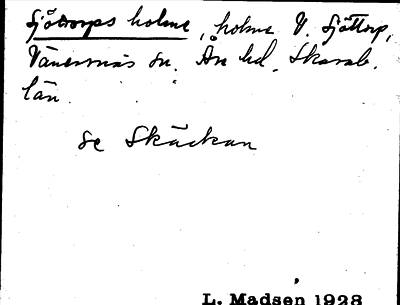 Sjötorps holme, holme V. Sjöttorp,
Vänersnäs sn. Åse hd. Skarab.
län.
se Skäckan
L. Madsen 1928